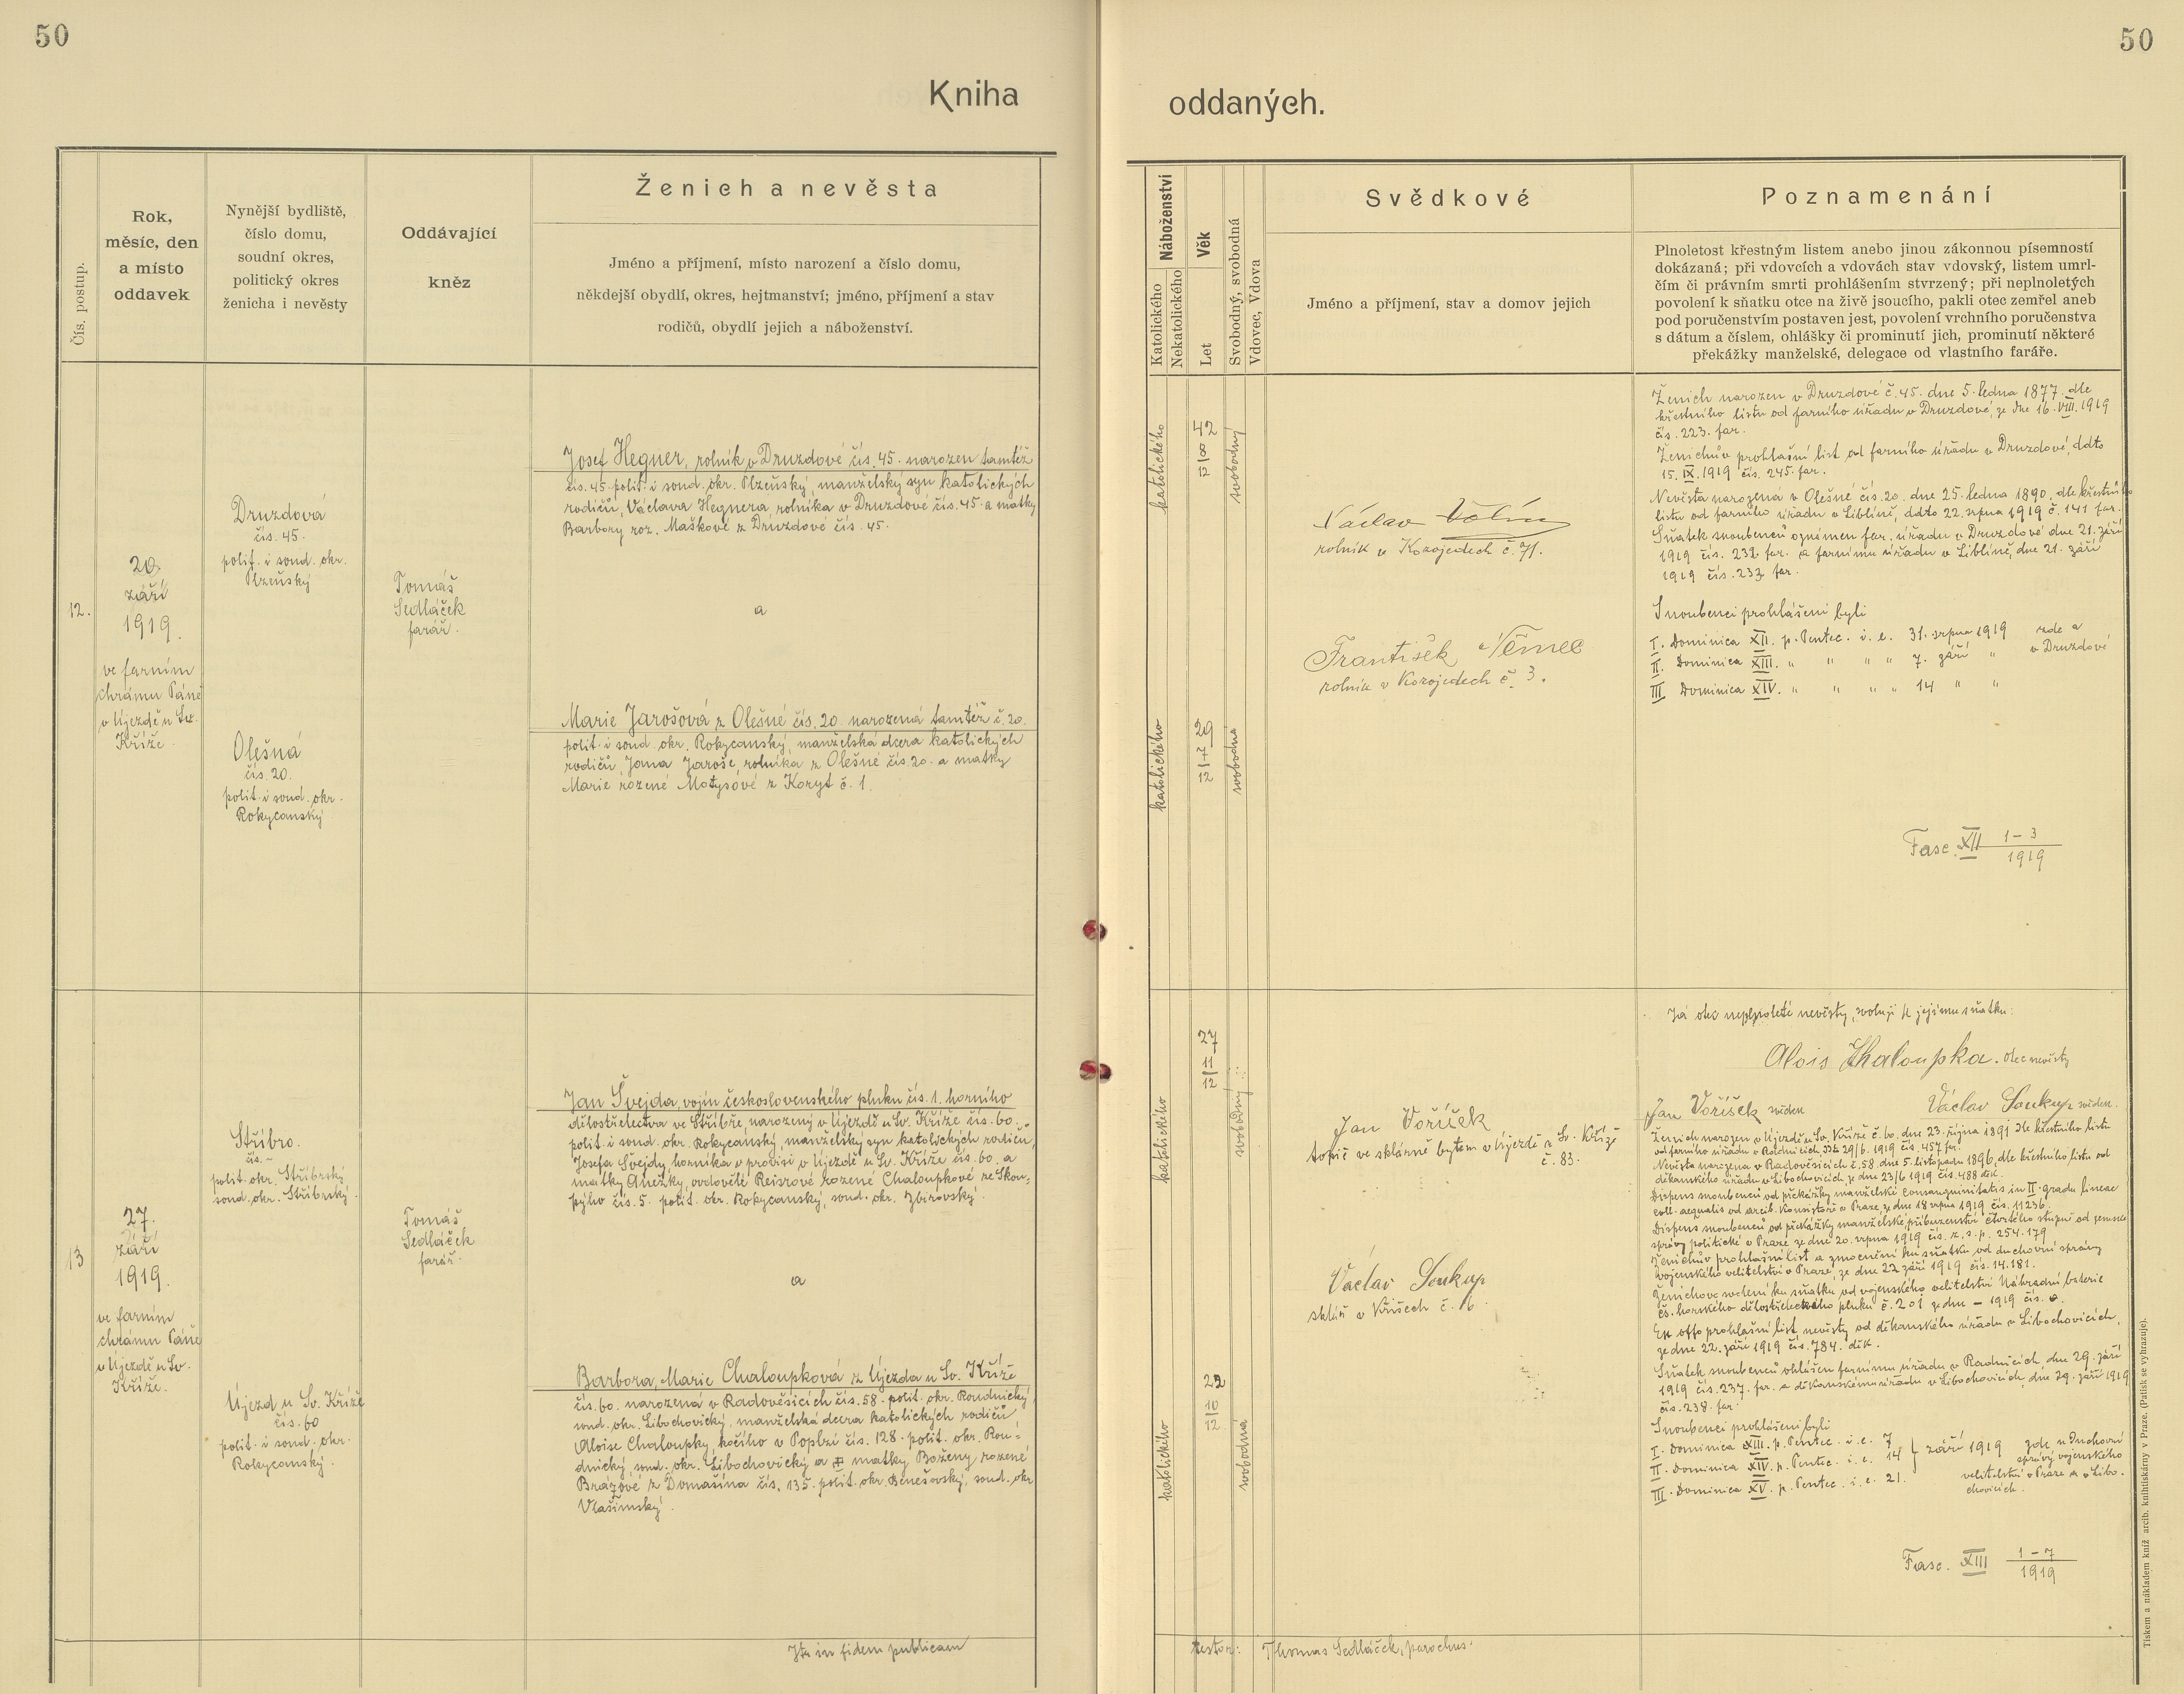 50
50
Kniha
oddaných.
Čís. postup.
Rok,
měsíc, den
a místo
oddavek
Nynější bydliště,
číslo domu,
soudní okres,
politický okres
ženicha i nevěsty
Oddávající
kněz
Ženich a nevěsta
Jméno a příjmení, místo narození a číslo domu,
někdejší obydlí, okres, hejtmanství; jméno, příjmení a stav
rodičů, obydlí jejich a náboženství.
Náboženství
Katolického
Nekatolického
Věk
Let
Svobodný, svobodná
Vdovec, Vdova
Svědkové
Jméno a příjmení, stav a domov jejich
Poznamenání
Plnoletost křestným listem anebo jinou zákonnou písemností
dokázaná; při vdovcích a vdovách stav vdovský, listem umrl-
čím či právním smrti prohlášením stvrzený; při neplnoletých
povolení k sňatku otce na živě jsoucího, pakli otec zemřel aneb
pod poručenstvím postaven jest, povolení vrchního poručenstva
s dátum a číslem, ohlášky či prominutí jich, prominutí některé
překážky manželské, delegace od vlastního faráře.
12.
20.
září
1919.
ve farním
chrámu Páně
v Újezdě u Sv.
Kříže.
Druzdová
čís. 45.
polit. i soud. okr.
Plzeňský
Olešná
čís. 20.
polit. i soud. okr.
Rokycanský
Tomáš
Sedláček
farář.
Josef Hegner, rolník v Druzdové čís. 45. narozen tamtéž
čís. 45. polit. i soud. okr. Plzeňský, manželský syn katolických
rodičů, Václava Hegnera, rolníka v Druzdové čís. 45. a matky
Barbory roz. Maškové z Druzdové čís. 45.
a
Marie Jarošová z Olešné čís. 20. narozená tamtéž č. 20.
polit. i soud. okr. Rokycanský, manželská dcera katolických
rodičů, Jana Jaroše, rolníka z Olešné čís. 20. a matky
Marie rozené Motysové z Koryt č. 1.
katolického
42
8
12
svobodný
katolického
29
7
12
svobodná
Václav Volín
rolník v Kozojedech č. 71.
František Němec
rolník v Kozojedech č. 3.
Ženich narozen v Druzdové č. 45. dne 5. ledna 1877. dle
křestního listu od farního úřadu v Druzdové, ze dne 16. VIII. 1919
čís. 223. far.
Ženichův prohlašní list od farního úřadu v Druzdové, ddto
15. IX. 1919 čís. 245. far.
Nevěsta narozená v Olešné čís. 20. dne 25. ledna 1890. dle křestního
listu od farního úřadu v Liblíně, ddto 22. srpna 1919 č. 141 far.
Sňatek snoubenců oznámen far. úřadu v Druzdové dne 21. září
1919 čís. 232 far. a farnímu úřadu v Liblíně, dne 21. září
1919 čís. 233 far.
Snoubenci prohlášeni byli
I. Dominica XII. p. Pentec. i. e. 31. srpna 1919 zde a
II. Dominica XIII. " " " " 7. září " v Druzdové
III Dominica XIV. " " " " 14 " "
Fasc. XII 1-3
1919
13
27.
září
1919.
ve farním
chrámu Páně
v Újezdě u Sv.
Kříže.
Stříbro.
čís. –
polit. okr. Stříbrský
soud. okr. Stříbrský.
Újezd u Sv. Kříže
čís. 60
polit. i soud. okr.
Rokycanský.
Tomáš
Sedláček
farář.
Jan Švejda, vojín československého pluku čís. 1. horního
dělostřelectva ve Stříbře, narozený v Újezdě u Sv. Kříže čís. 60.
polit. i soud. okr. Rokycanský, manželský syn katolických rodičů,
Josefa Švejdy, horníka v provisi v Újezdě u Sv. Kříže čís. 60. a
matky Anežky, ovdovělé Reisrové rozené Chaloupkové ze Skou-
pýho čís. 5. polit. okr. Rokycanský, soud. okr. Zbirovský.
a
Barbora, Marie Chaloupková z Újezda u Sv. Kříže
čís. 60. narozená v Radověsicích čís. 58. polit. okr. Roudnický,
soud. okr. Libochovický, manželská dcera katolických rodičů
Aloise Chaloupky, kočího v Poplzí čís. 128. polit. okr. Rou-
dnický, soud. okr. Libochovický a matky Boženy rozené
Brázové z Domašína čís. 135. polit. okr. Benešovský, soud. okr.
Vlašimský.
katolického
27
11
12
svobodný
katolického
22
10
12
svobodná
Jan Voříšek
topič ve sklárně bytem v Újezdě u Sv. Kříže
č. 83.
Václav Soukup
sklář v Křišech č. 16.
Já otec neplnoleté nevěsty, svoluji k jejímu sňatku:
Alois Chaloupka. otec nevěsty
Jan Voříšek svědek Václav Soukup svědek.
Ženich narozen v Újezdě u Sv. Kříže č. 60. dne 23. října 1891 dle křestního listu
od farního úřadu v Radnicích, dto 29/6. 1919 čís. 457 far.
Nevěsta narozena v Radověsicích č. 58. dne 5. listopadu 1896, dle křestního listu od
děkanského úřadu v Libochovicích, ze dne 23/6 1919 čís. 488 děk.
Dispens snoubenců od překážky manželské consanguinitatis in II. gradu lineae
coll. aequalis od arcib. Konsistoře v Praze, ze dne 18 srpna 1919 čís. 11236.
Dispens snoubenců od překážky manželské, příbuzenství čtvrtého stupně od zemské
správy politické v Praze ze dne 20. srpna 1919 čís. z. s. p. 254.179
Ženichův prohlašní list a zmocnění ku sňatku od duchovní správy
vojenského velitelství v Praze, ze dne 22 září 1919 čís. 14.181.
Ženichovo svolení ku sňatku od vojenského velitelství Náhradní baterie
čs. horského dělostřeleckého pluku č. 201 ze dne – 1919 čís.
Ex offo prohlašní list nevěsty od děkanského úřadu v Libochovicích,
ze dne 22. září 1919 čís. 784. děk.
Sňatek snoubenců ohlášen farnímu úřadu v Radnicích, dne 29. září
1919 čís. 237. far. a děkanskému úřadu v Libochovicích, dne 29. září 1919
čís. 238. far.
Snoubenci prohlášeni byli
I. Dominica XIII. p. Pentec. i. e. 7
II. Dominica XIV. p. Pentec. i. e. 14 září 1919 zde, u Duchovní
správy vojenského
III. Dominica XV. p. Pentec. i. e. 21. velitelství v Praze a v Libo-
chovicích.
Fasc. XIII 1-7
1919
Ita in fidem publicam
testor: Thomas Sedláček, parochus.
Tiskem a nákladem kníž. arcib. knihtiskárny v Praze. (Patisk se vyhrazuje).